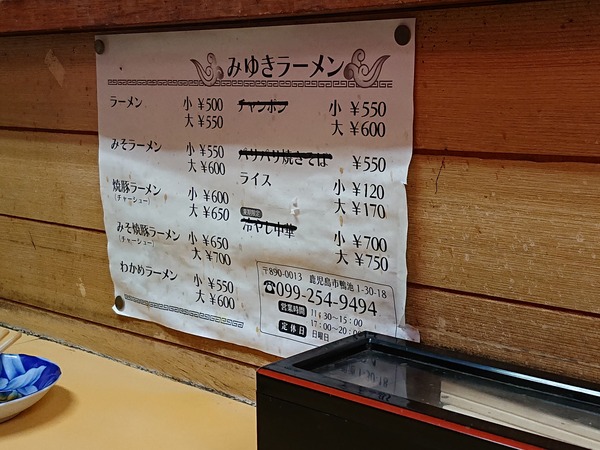 みゆきラーメン
ラーメン 小 ¥500
大 ¥550
みそラーメン 小 ¥550
大 ¥600
焼豚ラーメン 小 ¥600
(チャーシュー) 大 ¥650
みそ焼豚ラーメン 小 ¥650
(チャーシュー) 大 ¥700
わかめラーメン 小 ¥550
大 ¥600
チャンポン 小 ¥550
大 ¥600
パリパリ焼きそば ¥550
ライス 小 ¥120
大 ¥170
夏期限定
冷やし中華 小 ¥700
大 ¥750
〒890-0013 鹿児島市鴨池 1-30-18
☎099-254-9494
営業時間 11:30~15:00
17:00~20:00
定休日 日曜日